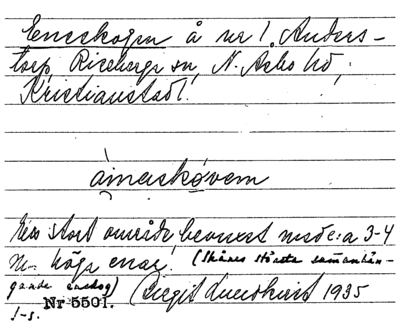 Eneskogen å nr 1. Anders-
torp, Riseberga sn, N. Asbo hd,
Kristianstads l.
Ett stort område, bevuxet med c:a 3-4
m höga enar. (Skånes största sammanhän-
gande enskog) Birgit Lundkvist 1935
Nr 5501.